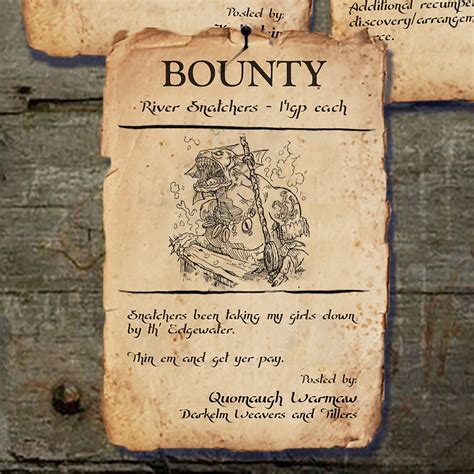 Posted by:
Additional recumpe
discovery/arrangem
BOUNTY
River Snatchers - 14gp each
Snatchers been taking my girls down
by th' Edgewater.
Thin em and get yer pay.
Posted by:
Quomaugh Warmaw
Darkelm Weavers and Tillers